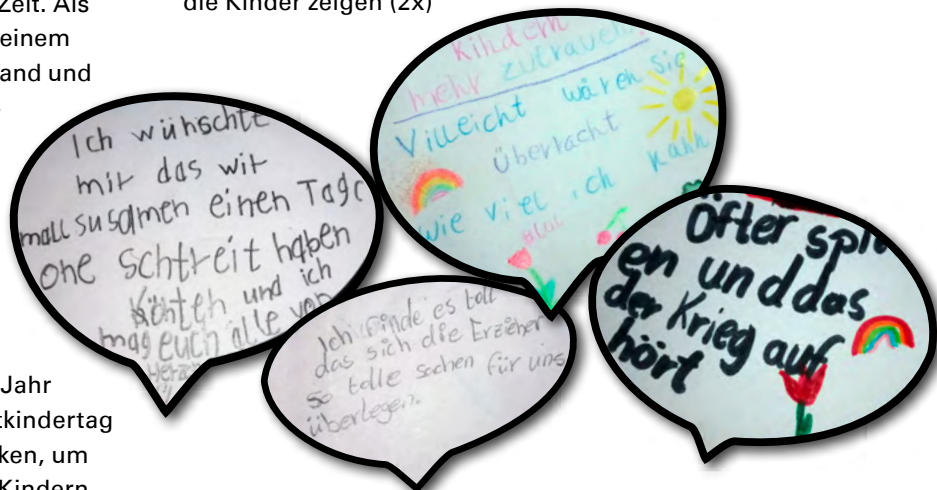 Zeit. Als
einem
and und
die Kinder zeigen (2x)
Ich wünschte
mir das wir
mall susamen einen Tage
one Schtreit haben
Könten und ich
mag euch alle von
Kindern
mehr zutrauen!
Villeicht wären sie
überracht
wie viel ich kann
Ich finde es toll
das sich die Erzieher
so tolle sachen für uns
überlegen.
Öfter spiel
en und das
der Krieg auf
hört
Jahr
tkindertag
ken, um
Kindern